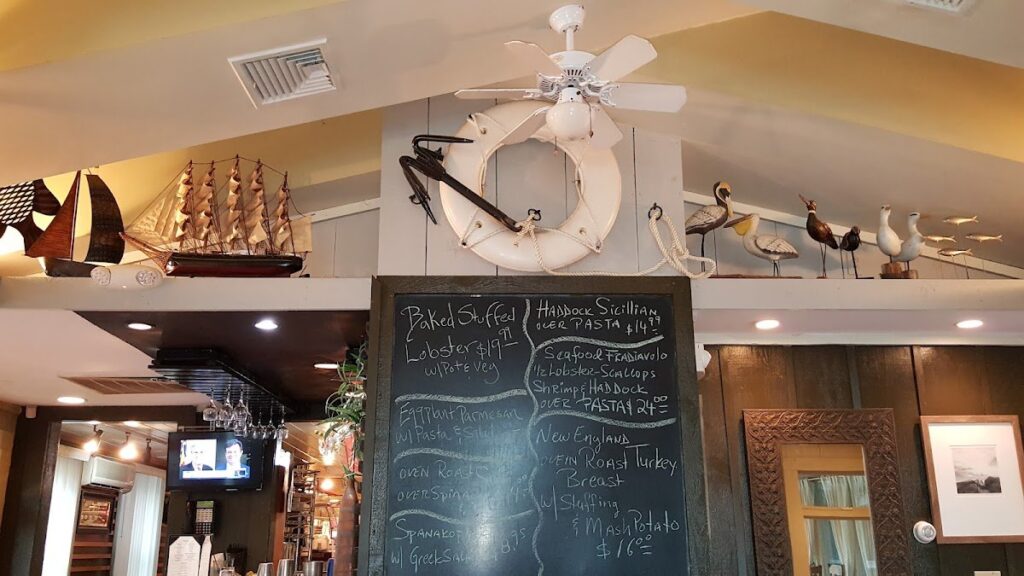 Baked Stuffed
Lobster $19.99
w/ Pot & Vey
Eggplant Parmesan
w/ Pasta &
Oven Roast
over
Spanako
w/ Greek
Haddock Sicillian
over Pasta $14.99
Seafood Fradiavolo
1/2 Lobster-Scallops
Shrimp & Haddock
over Pasta $24.00
New England
oven Roast Turkey
Breast
w/ Stuffing
& Mash Potato
$16.00